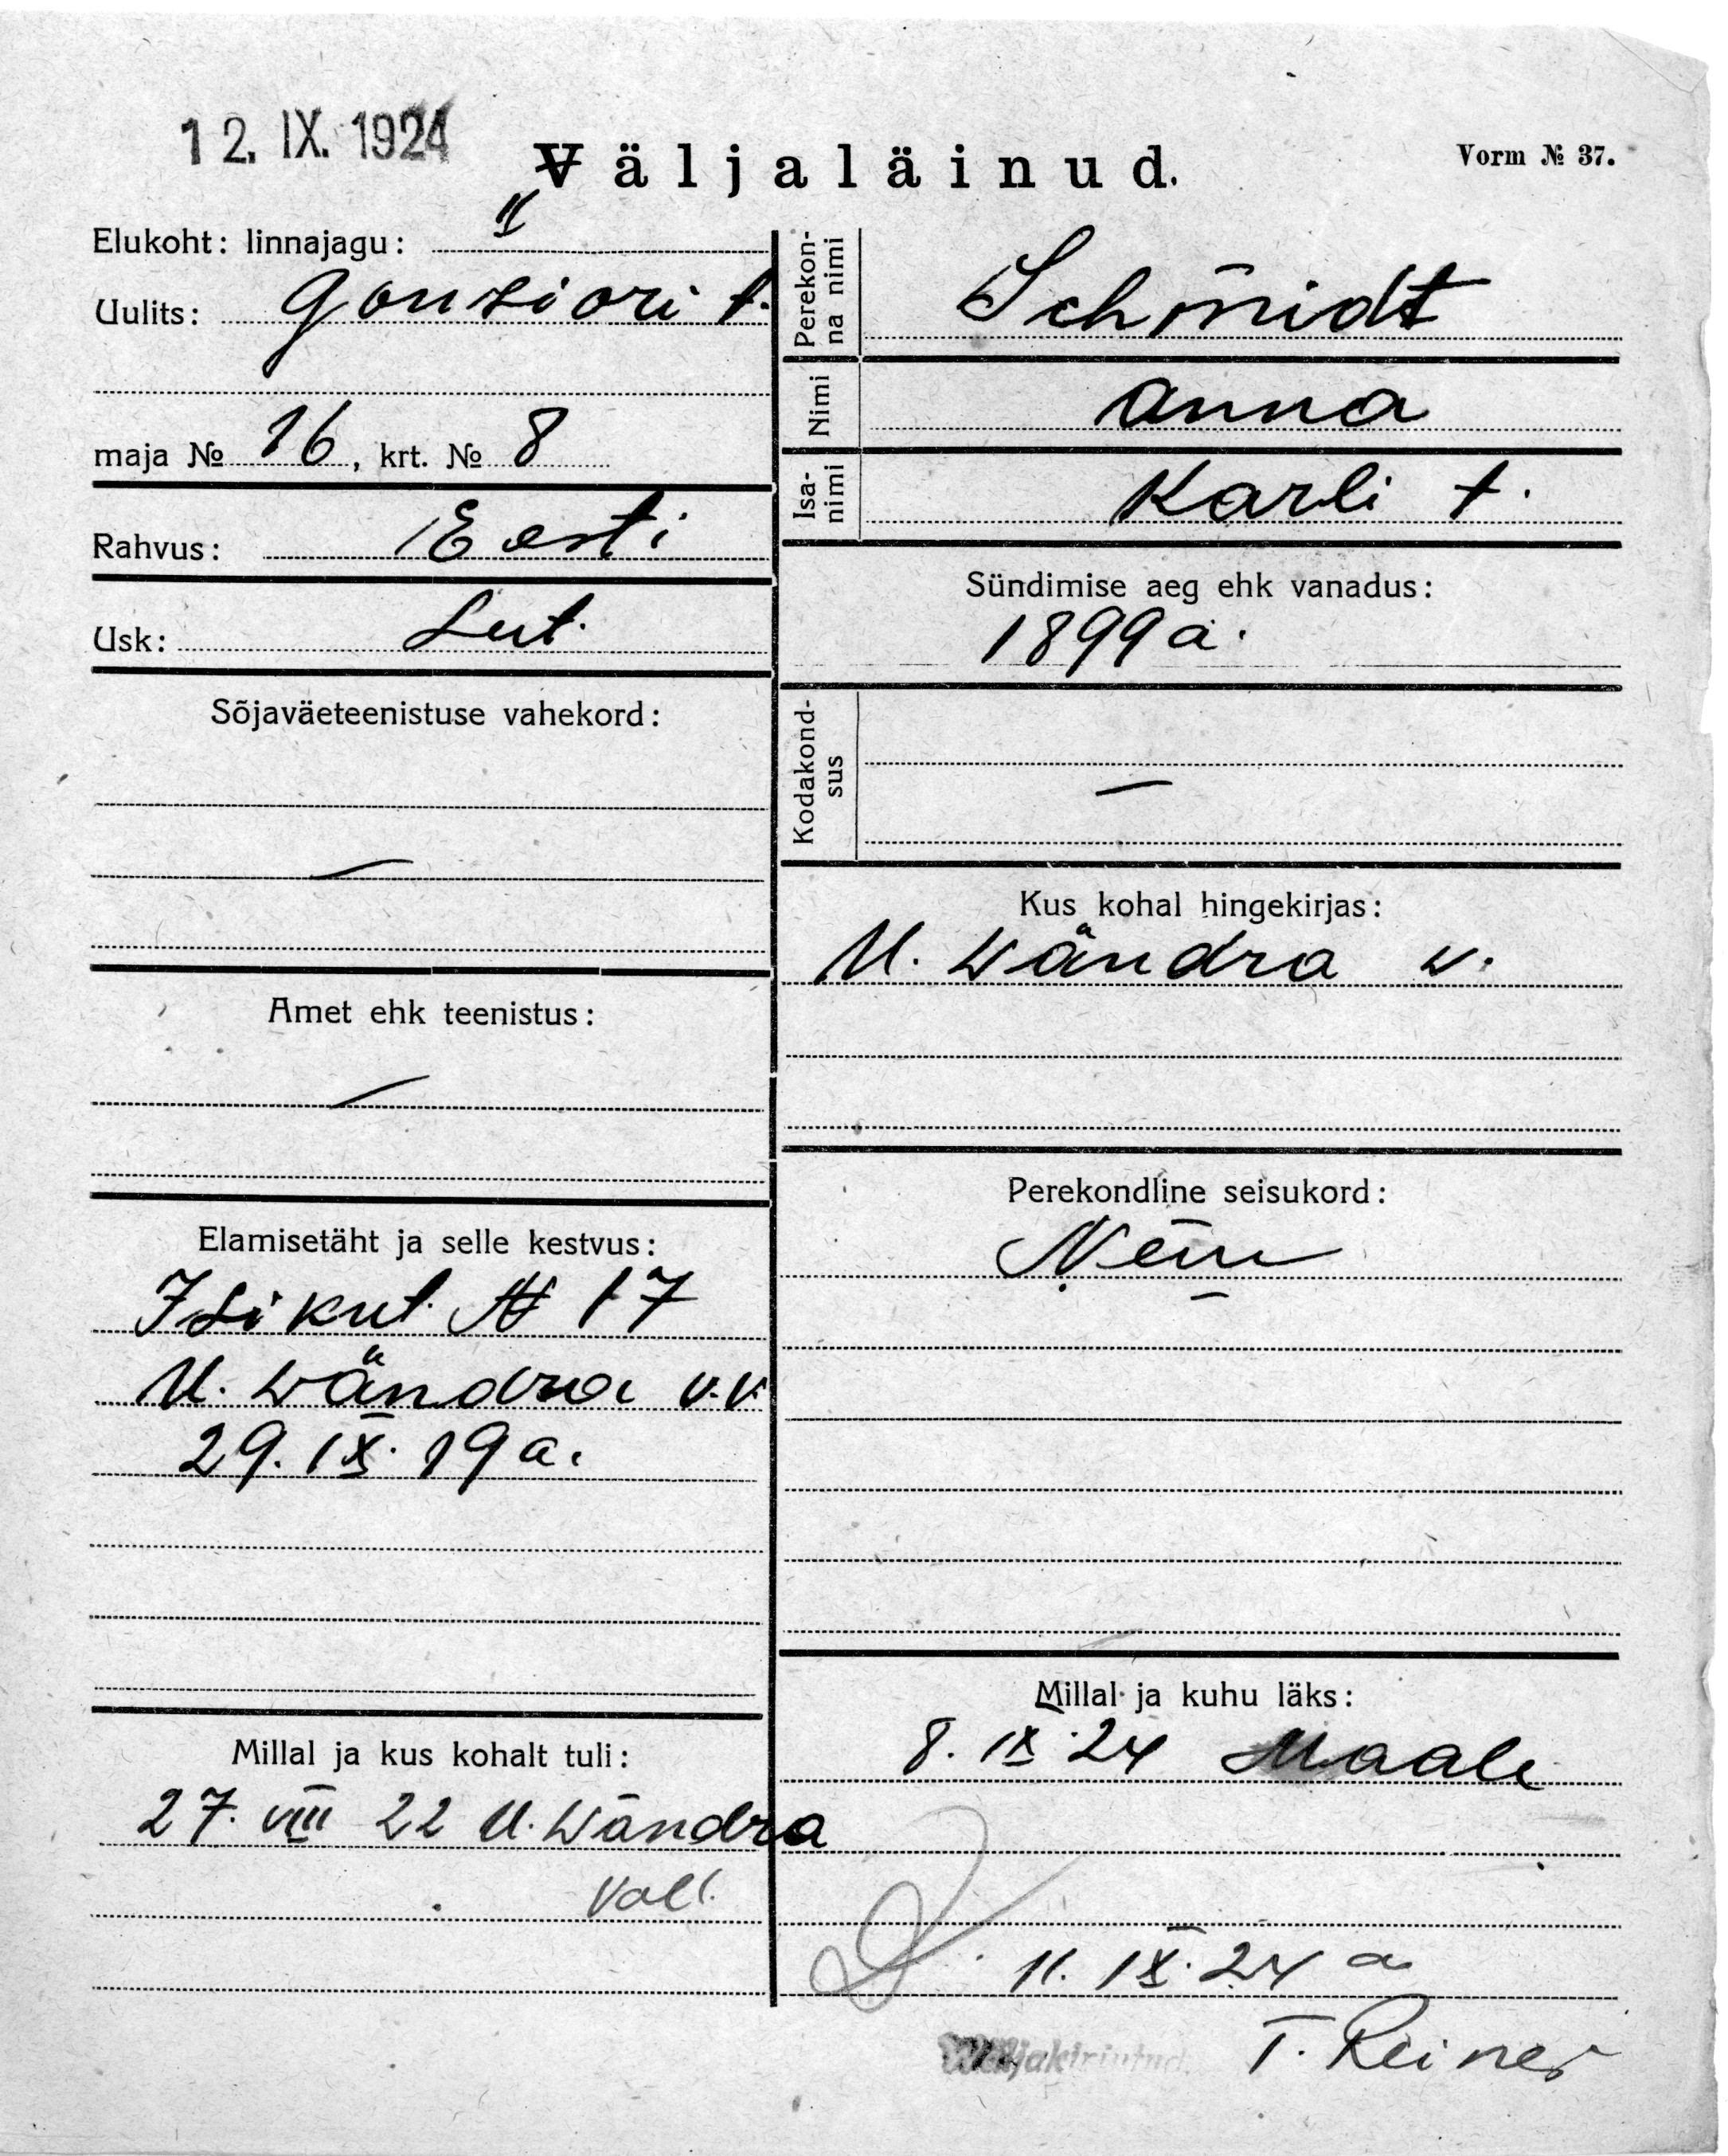 12. IX. 1924
Väljaläinud.
Vorm № 37.
Elukoht: linnajagu: II
Uulits: Gonsiori t.
maja № 16, krt. № 8
Rahvus: Eesti
Usk: Lut.
Sõjaväeteenistuse vahekord:
—
Amet ehk teenistus:
—
Elamisetäht ja selle kestvus:
Isikut. № 17
U. Wändra v.v.
29. IX. 19 a.
Millal ja kus kohalt tuli:
27. VIII 22 U. Wändra
vall.
Perekon-
na nimi
Schmidt
Nimi
Anna
Isa-
nimi
Karli t.
Sündimise aeg ehk vanadus:
1899 a.
Kodakond-
sus
—
Kus kohal hingekirjas:
U. Wändra w.
Perekondline seisukord:
Millal ja kuhu läks:
8. IX 24 Maale
11. IX. 24 a
Wäljakirjutud.
T. Reiner